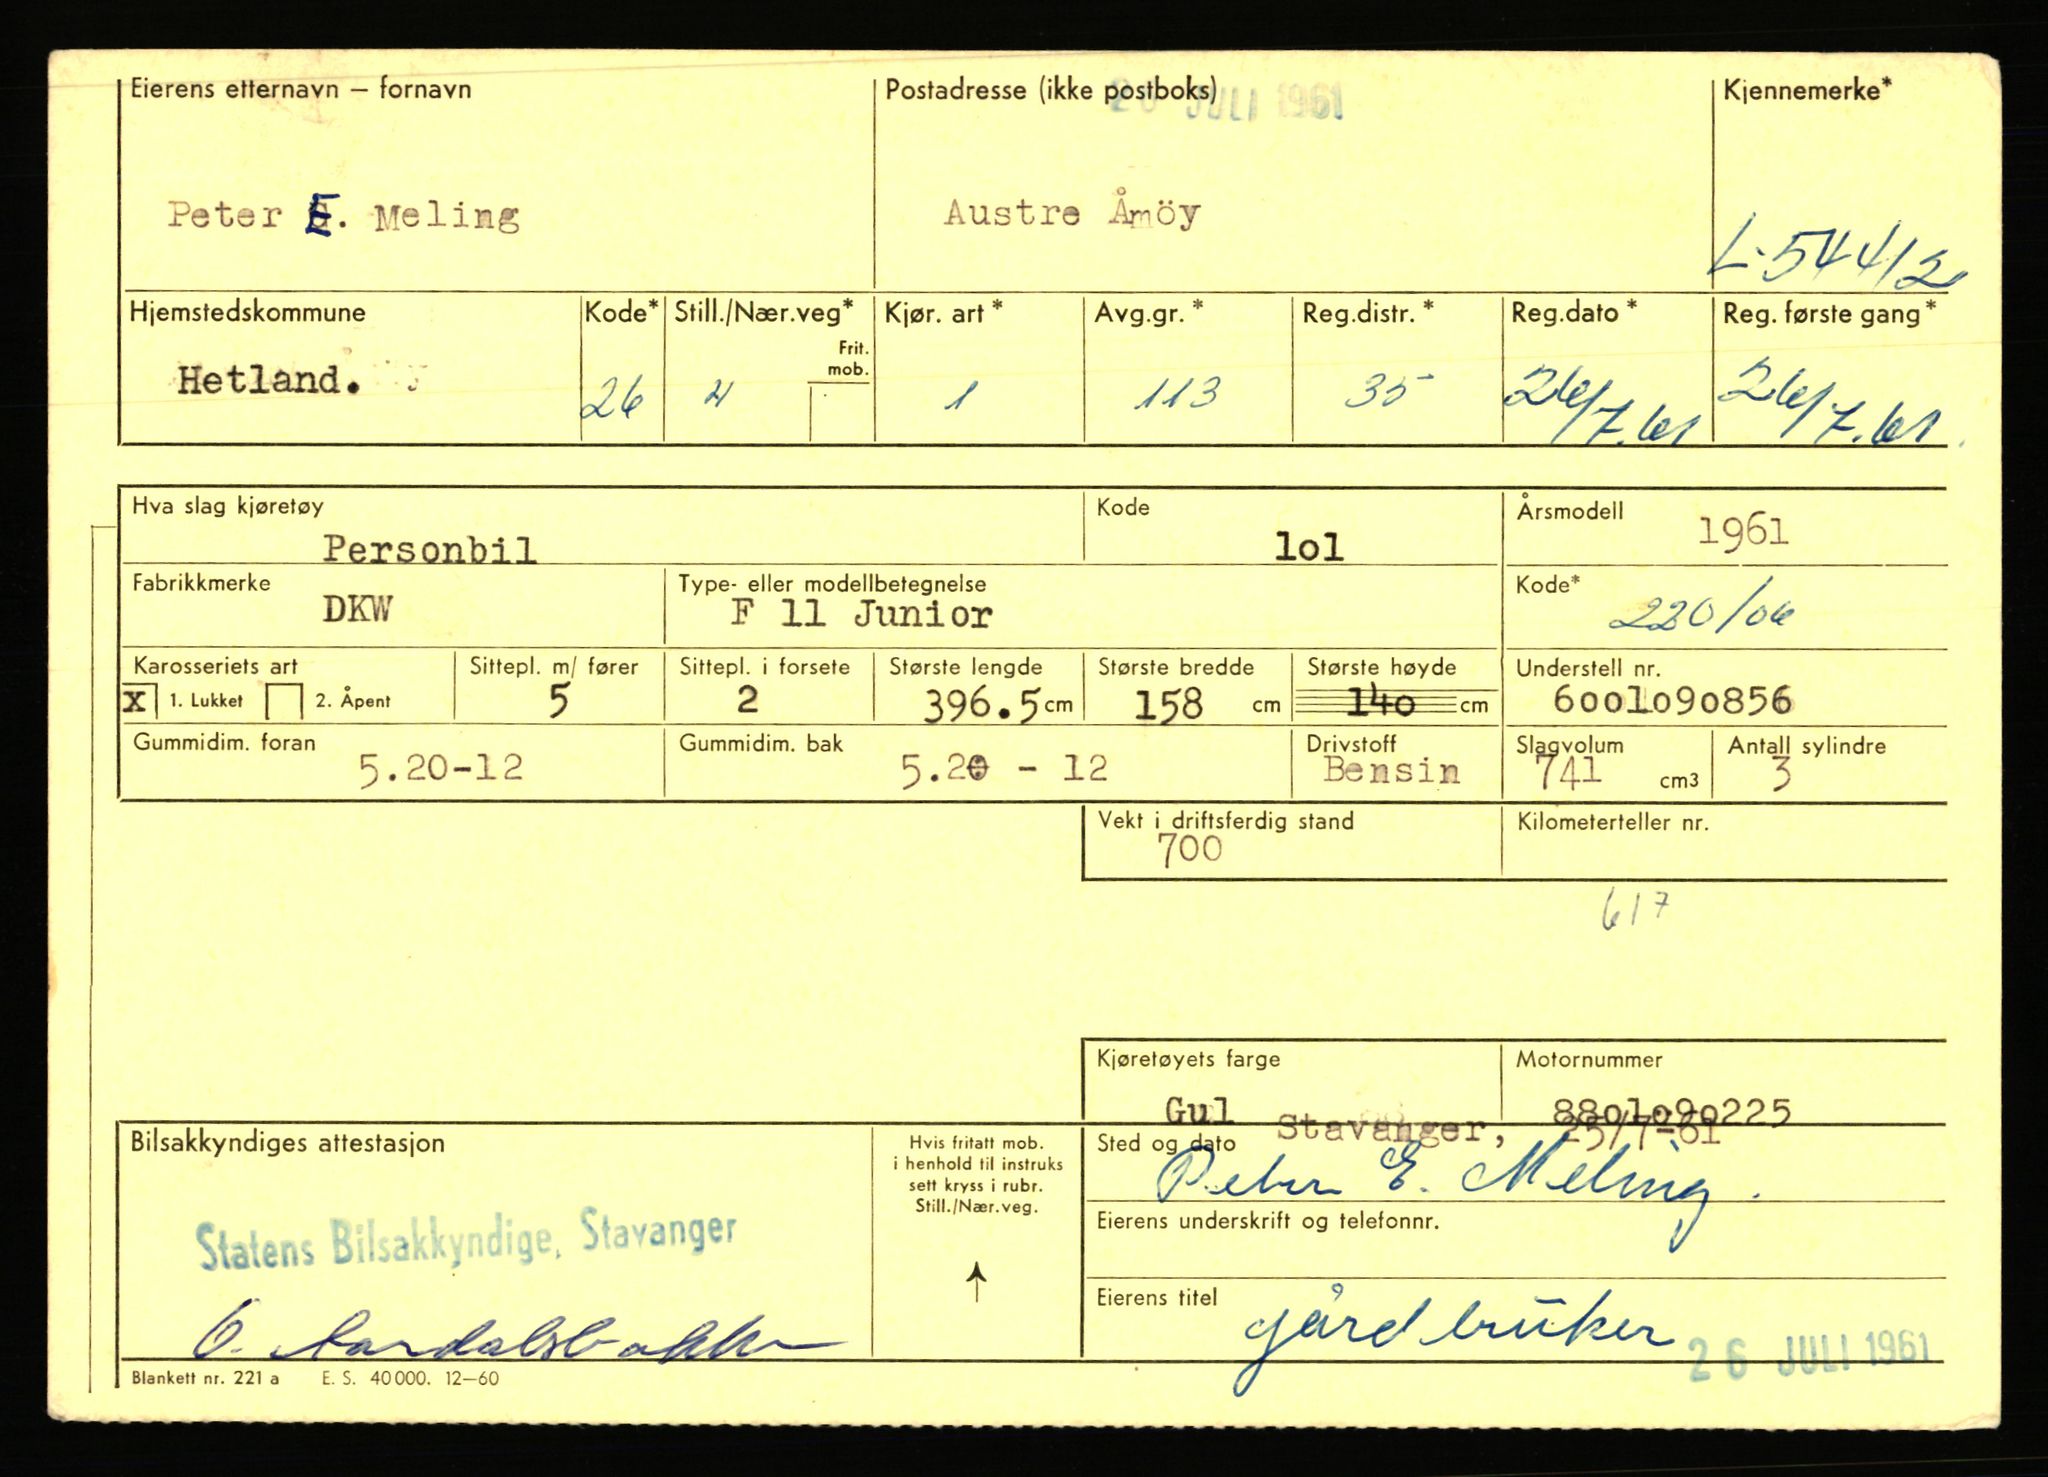 Eierens etternavn – fornavn Postadresse (ikke postboks) Kjennemerke*
26 JULI 1961
Peter E. Meling Austre Åmöy
L-54412
Hjemstedskommune Kode* Still./Nær.veg* Kjør. art* Avg.gr.* Reg.distr.* Reg.dato* Reg. første gang*
Frit.
mob.
Hetland. 26 4 1 113 35 26/7.61 26/7.61
Hva slag kjøretøy Kode Årsmodell
Personbil lol 1961
Fabrikkmerke Type- eller modellbetegnelse Kode*
DKW F 11 Junior 220/06
Karosseriets art Sittepl. m/ fører Sittepl. i forsete Største lengde Største bredde Største høyde Understell nr.
X 1. Lukket 2. Åpent 5 2 396.5 cm 158 cm 140 cm 6001090856
Gummidim. foran Gummidim. bak Drivstoff Slagvolum Antall sylindre
5.20-12 5.20 - 12 Bensin 741 cm3 3
Vekt i driftsferdig stand Kilometerteller nr.
700
617
Kjøretøyets farge Motornummer
Gul 8801090225
Stavanger, 25/7-61
Bilsakkyndiges attestasjon Hvis fritatt mob. Sted og dato
i henhold til instruks
sett kryss i rubr.
Still./Nær.veg.
Peter E. Meling.
Eierens underskrift og telefonnr.
Statens Bilsakkyndige, Stavanger
Eierens titel
gårdbruker
26 JULI 1961
Blankett nr. 221 a E. S. 40 000. 12–60